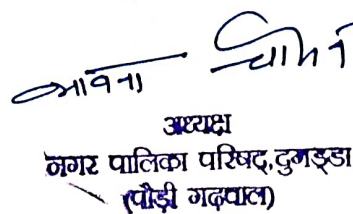 भावना
अध्यक्ष
नगर पालिका परिषद्,दुगड्डा
(पौड़ी गढ़वाल)